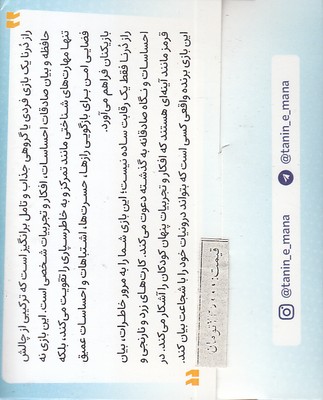 راز دُرنا یک بازی فردی یا گروهی جذاب و تامل برانگیز است که ترکیبی از چالش
حافظه و بیان صادقانه احساسات، افکار و تجربیات شخصی است. این بازی نه
تنها مهارت‌های شناختی مانند تمرکز و به خاطرسپاری را تقویت می‌کند، بلکه
فضایی امن برای بازگویی رازها، حسرت‌ها، اشتباهات و احساسات عمیق
بازیکنان فراهم می‌آورد.
راز دُرنا فقط یک رقابت ساده نیست؛ این بازی شما را به مرور خاطرات، بیان
احساسات و نگاه صادقانه به گذشته دعوت می‌کند. کارت‌های زرد و نارنجی و
قرمز مانند آینه‌ای هستند که افکار و تجربیات پنهان کودکان را آشکار می‌کند. در
این بازی برنده واقعی کسی است که بتواند درونیات خود را با شجاعت بیان کند.
قیمت: تومان
@tanin_e_mana
@tanin_e_mana